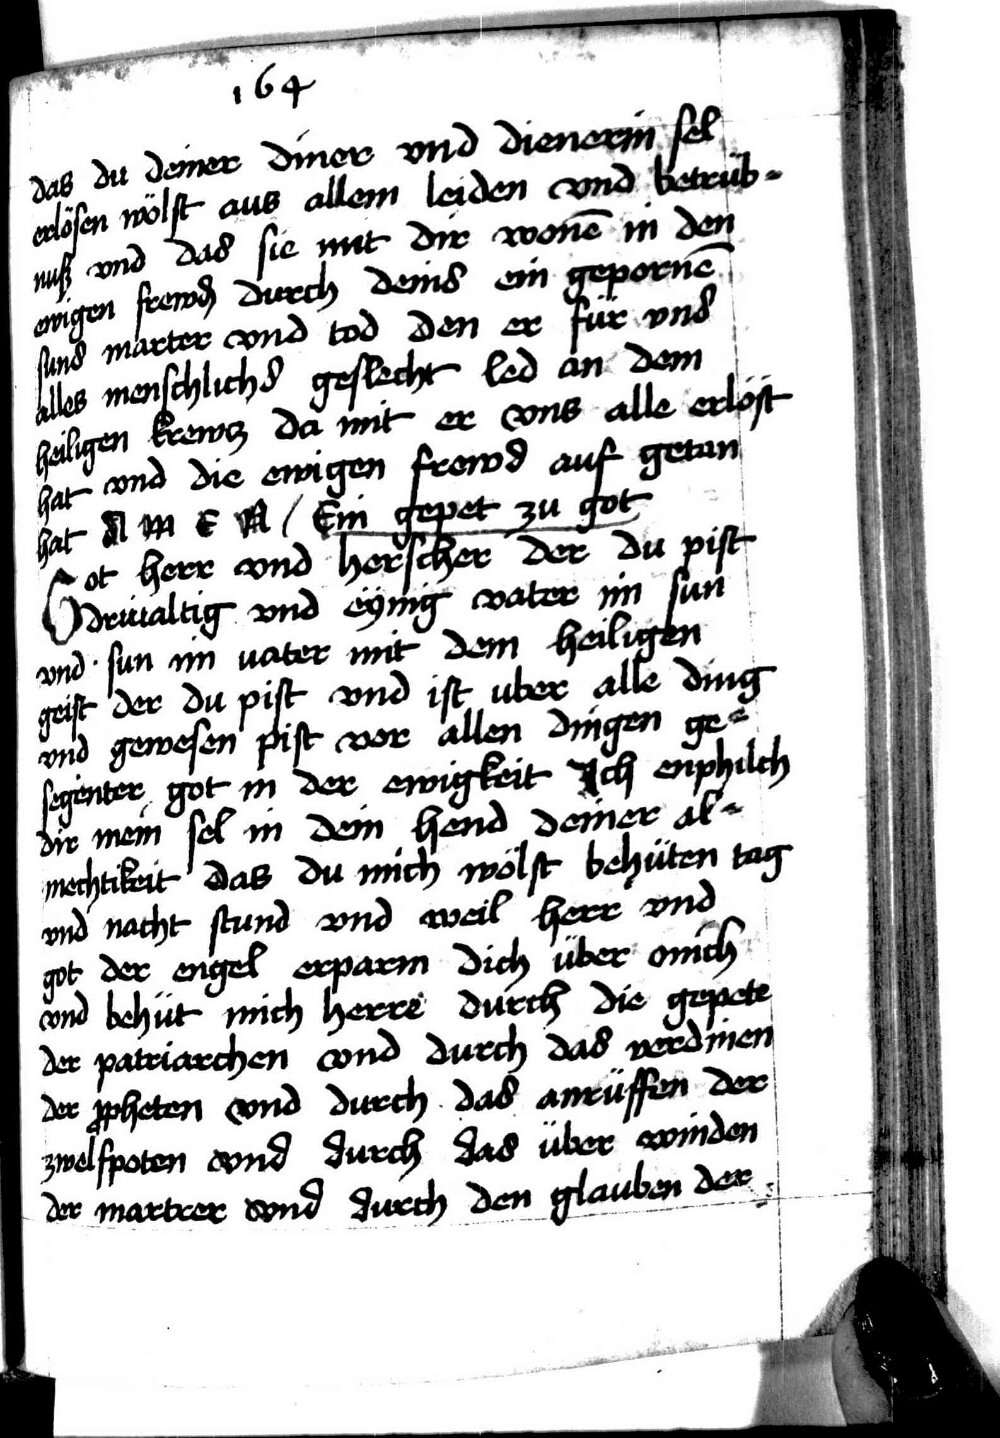 164
das du deiner diner vnd dienerin sel
erlösen wölst aus allem leiden vnd betrüb-
nuß vnd das sie mit dir wonē in den
ewigen frewdn durch deins ein gepornē
suns marter vnd tod den er für vns
alles menschlichs geslecht led an dem
heiligen krewcz da mit er vns alle erlöst
hat vnd die ewigen frewd auf getan
hat A M E N / Ein gepet zu got
Got herr vnd herscher der du pist
driualtig vnd eynig vater im sun
vnd sun im uater mit dem heiligen
geist der du pist vnd ist uber alle ding
vnd gewesen pist vor allen dingen ge-
segenter got in der ewigkeit Ich enphilch
dir mein sel in dein hend deiner al-
mechtikeit das du mich wölst behüten tag
vnd nacht stund vnd weil herr vnd
got der engel erparm dich über mich
vnd behüt mich herre durch die gepete
der patriarchen vnd durch das verdinen
der ꝓpheten vnd durch das anrüffen der
zwelfpoten vnd durch das über winden
der martrer vnd durch den glauben der